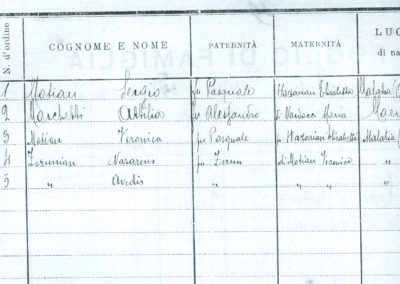 N. d'ordine COGNOME E NOME PATERNITÀ MATERNITÀ LUO
di na
1 Motian Sergio fu Pasquale Hazarian Elisabetta Malatia (
2 Marchetti Attilia fu Alessandro di Nardacci Maria
3 Motian Veronica fu Pasquale fu Hazarian Elisabetta Malatia (
4 Zerunian Nazareno fu Zerun di Motian Veronica "
5 " Avedis " " "